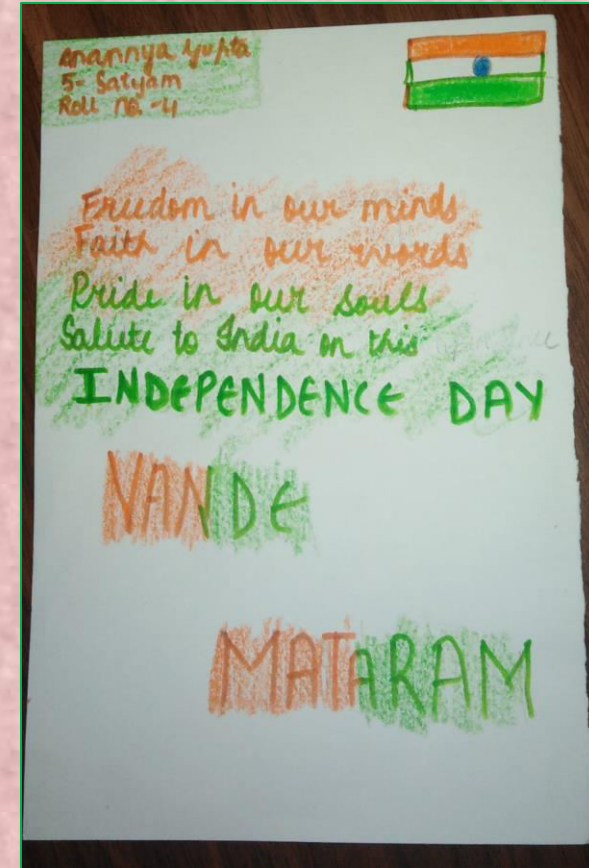 Anannya Gupta
5- Satyam
Roll no. -4
Freedom in our minds
Faith in our words
Pride in our souls
Salute to India on this
INDEPENDENCE DAY
VANDE
MATARAM